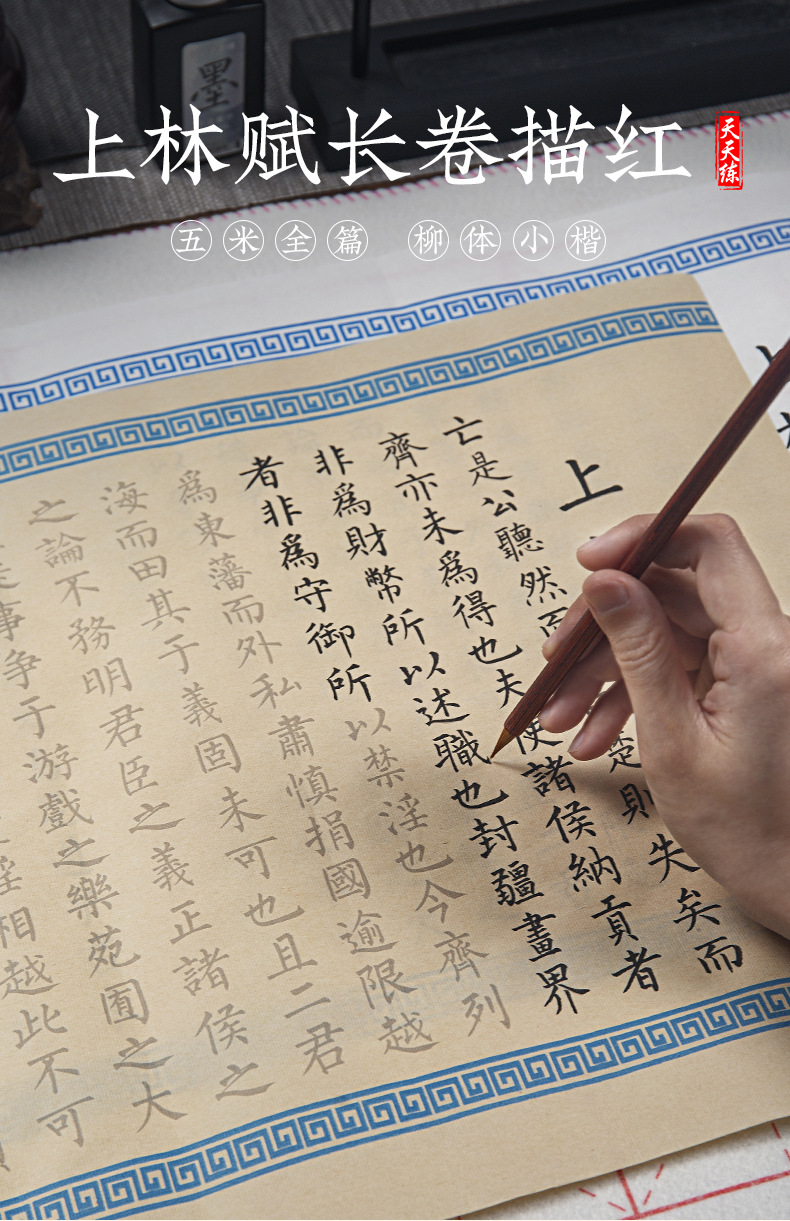 墨
上林赋长卷描红
天天练
五米全篇 柳体小楷
上
亡是公聽然而 楚則失矣而
齊亦未為得也夫使諸侯納貢者
非為財幣所以述職也封疆畫界
者非為守御所以禁淫也今齊列
為東藩而外私肅慎捐國逾限越
海而田其于義固未可也且二君
之論不務明君臣之義正諸侯之
事争于游戲之樂苑囿之大
淫相越此不可